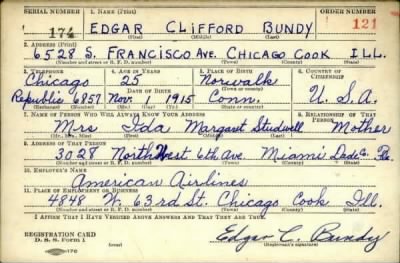 SERIAL NUMBER 1. NAME (Print) ORDER NUMBER
174 EDGAR CLIFFORD BUNDY 121
(First) (Middle) (Last)
2. ADDRESS (Print)
6528 S. FRANCISCO AVE. CHICAGO COOK ILL.
(Number and street or R. F. D. number) (Town) (County) (State)
3. TELEPHONE 4. AGE IN YEARS 5. PLACE OF BIRTH 6. COUNTRY OF CITIZENSHIP
Chicago 25 Norwalk
DATE OF BIRTH
Republic 6857 Nov. 1 1915 Conn. U.S.A.
7. NAME OF PERSON WHO WILL ALWAYS KNOW YOUR ADDRESS 8. RELATIONSHIP OF THAT PERSON
Mrs Ida Margaret Studwell Mother
(Mr., Mrs., Miss) (First) (Middle) (Last)
9. ADDRESS OF THAT PERSON
3028 NorthWest 6th Ave. Miami Dade Co. Fla.
(Number and street or R. F. D. number) (Town) (County) (State)
10. EMPLOYER'S NAME
American Airlines
11. PLACE OF EMPLOYMENT OR BUSINESS
4848 W. 63rd St. Chicago Cook Ill.
(Number and street or R. F. D. number) (Town) (County) (State)
I AFFIRM THAT I HAVE VERIFIED ABOVE ANSWERS AND THAT THEY ARE TRUE.
REGISTRATION CARD
D. S. S. Form 1
Edgar C. Bundy
(Registrant's signature)